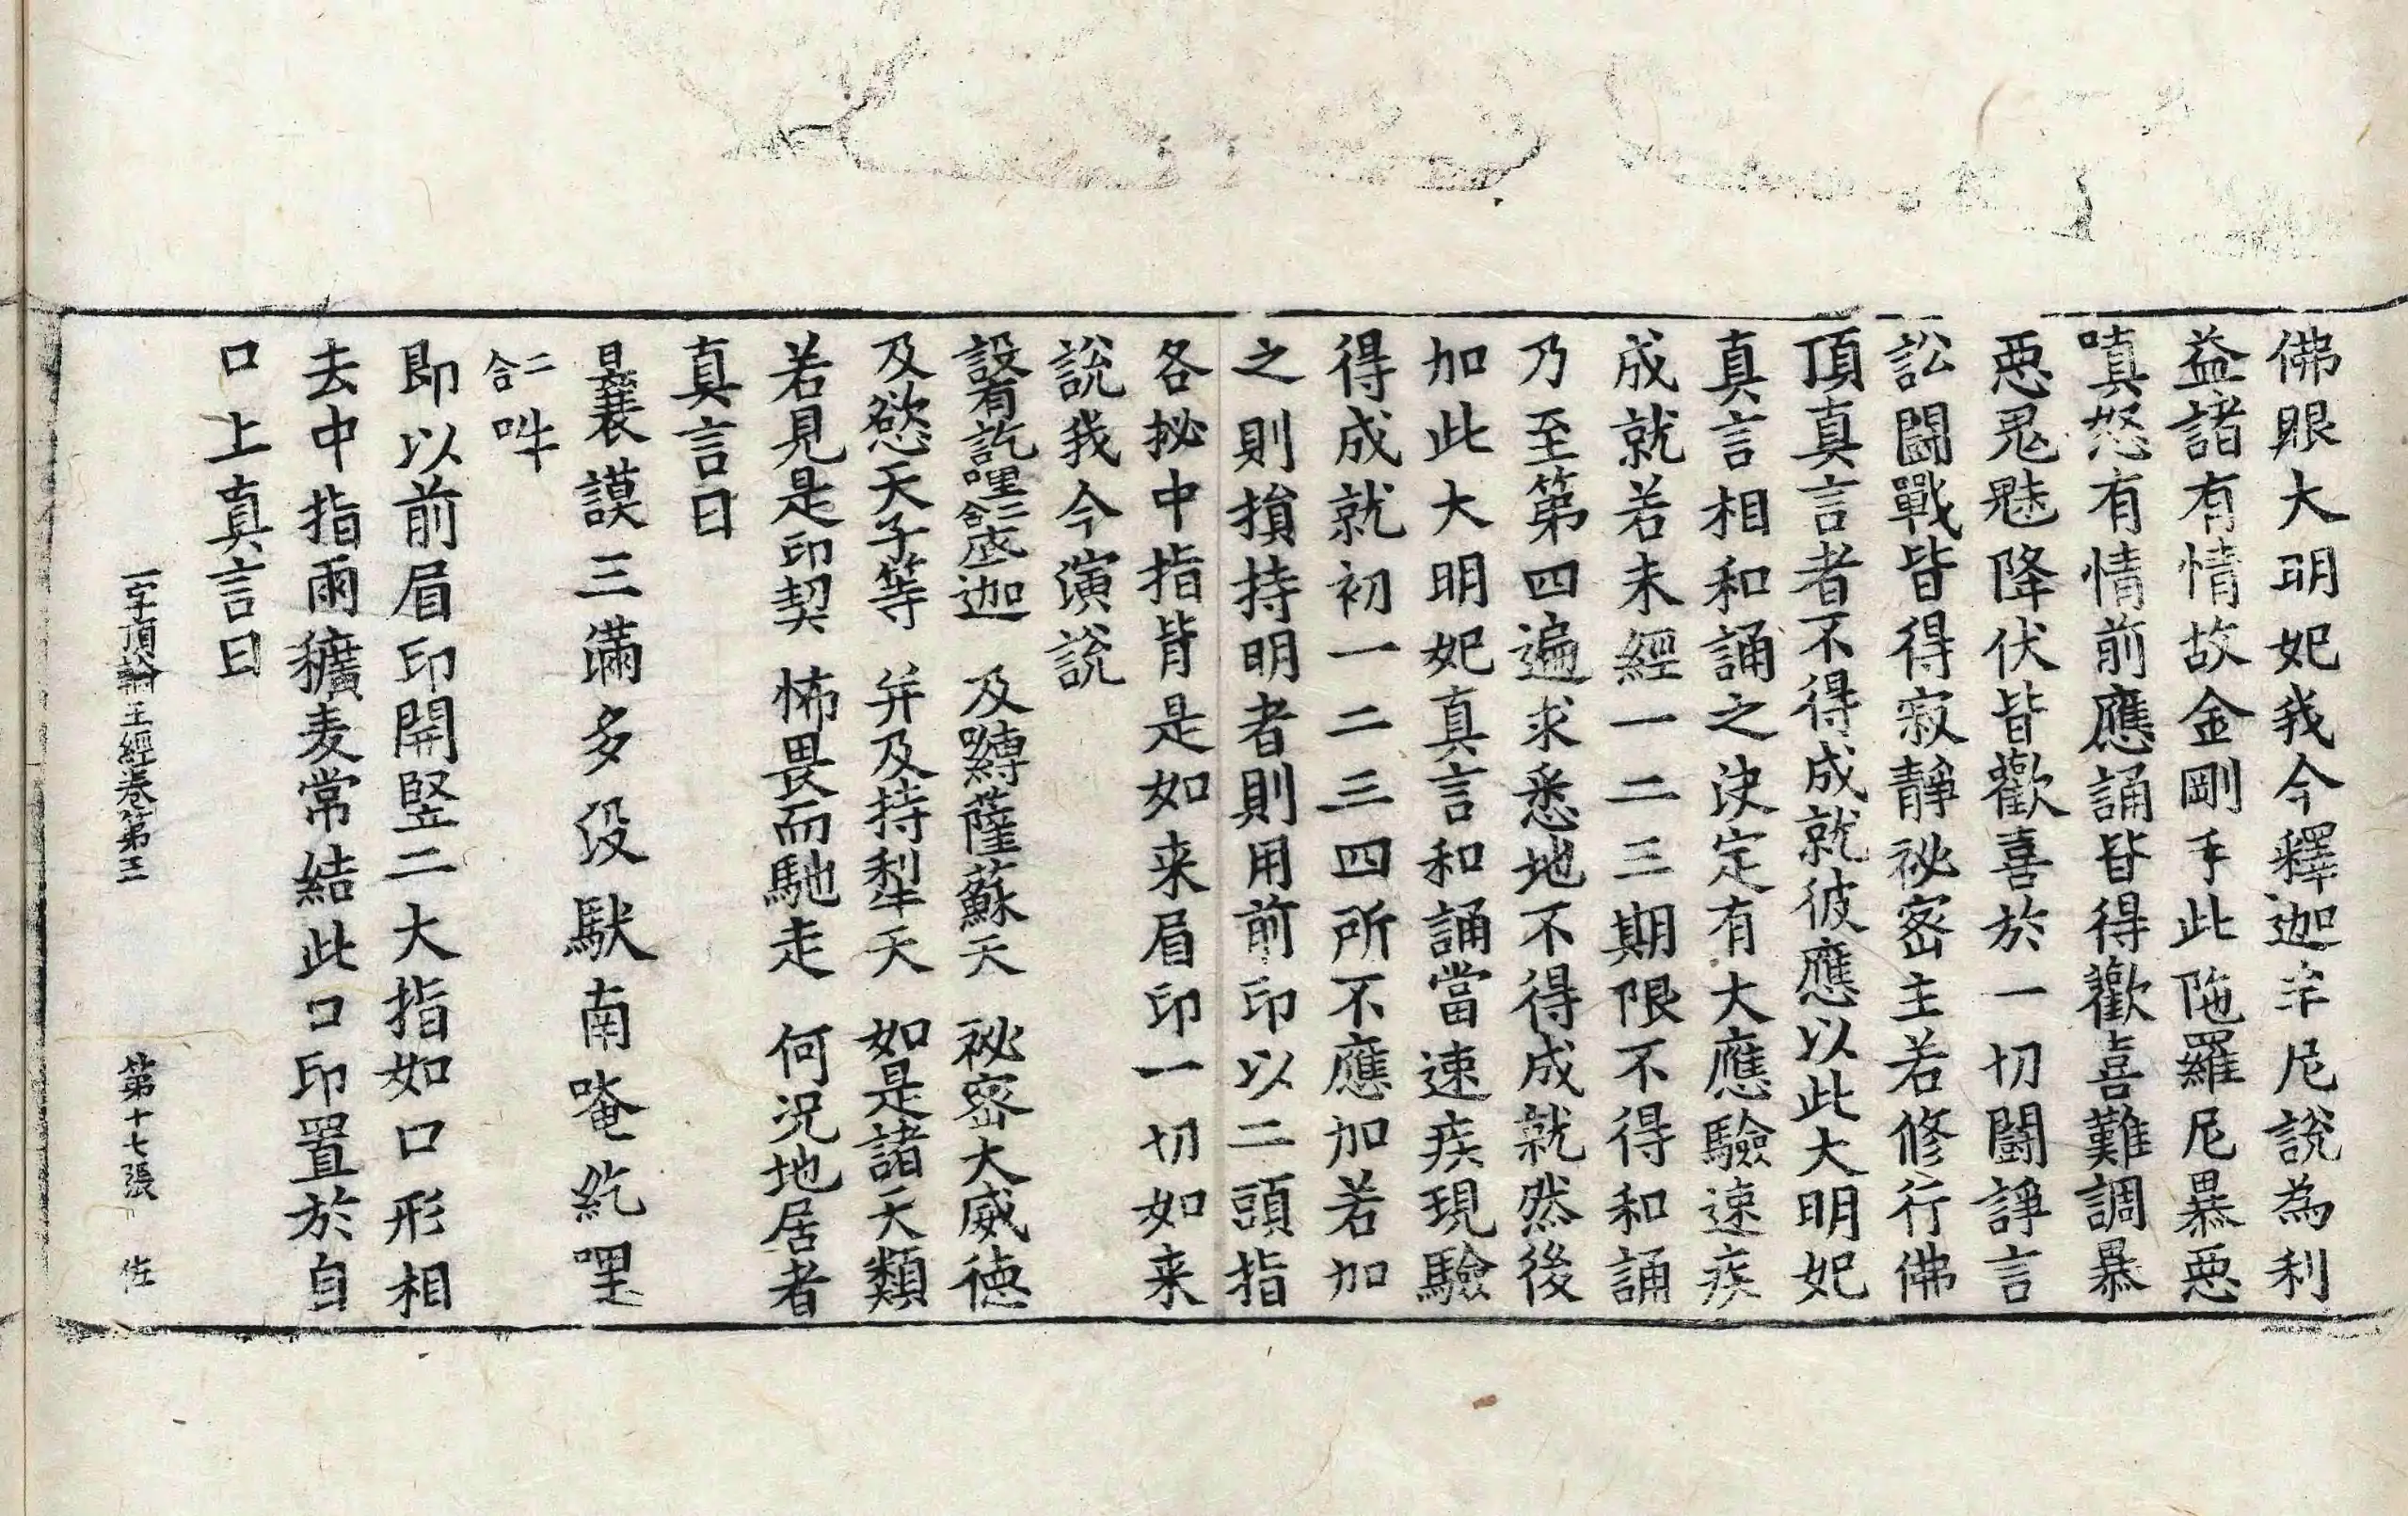 佛眼大明妃我今釋迦牟尼說為利
益諸有情故金剛手此陁羅尼暴惡
嗔怒有情前應誦皆得歡喜難調暴
惡鬼魅降伏皆歡喜於一切鬪諍言
訟鬪戰皆得寂靜祕密主若修行佛
頂真言者不得成就彼應以此大明妃
真言相和誦之決定有大應驗速疾
成就若未經一二三期限不得和誦
乃至第四遍求悉地不得成就然後
加此大明妃真言和誦當速疾現驗
得成就初一二三四所不應加若加
之則損持明者則用前印以二頭指
各拟中指背是如来眉印一切如来
說我今演說
設有訖哩二合瑟迦　及嚩薩蘇天　祕密大威徳
及慾天子等　并及持犁天　如是諸天類
若見是印契　怖畏而馳走　何況地居者
真言曰
曩謨三滿多没馱南唵紇哩
二合吽
即以前眉印開竪二大指如口形相
去中指兩穬麦常結此口印置於自
口上真言曰
一字頂輪王經卷第三　第十七張　佐